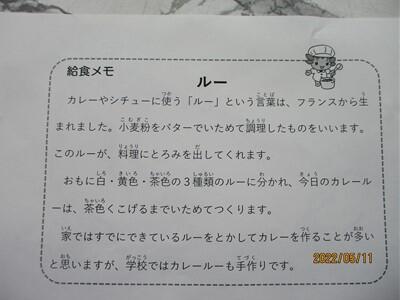 給食メモ
ルー
カレーやシチューに使う「ルー」という言葉は、フランスから生
まれました。小麦粉をバターでいためて調理したものをいいます。
このルーが、料理にとろみを出してくれます。
おもに白・黄色・茶色の3種類のルーに分かれ、今日のカレール
ーは、茶色くこげるまでいためてつくります。
家ではすでにできているルーをとかしてカレーを作ることが多い
と思いますが、学校ではカレールーも手作りです。
2022/05/11